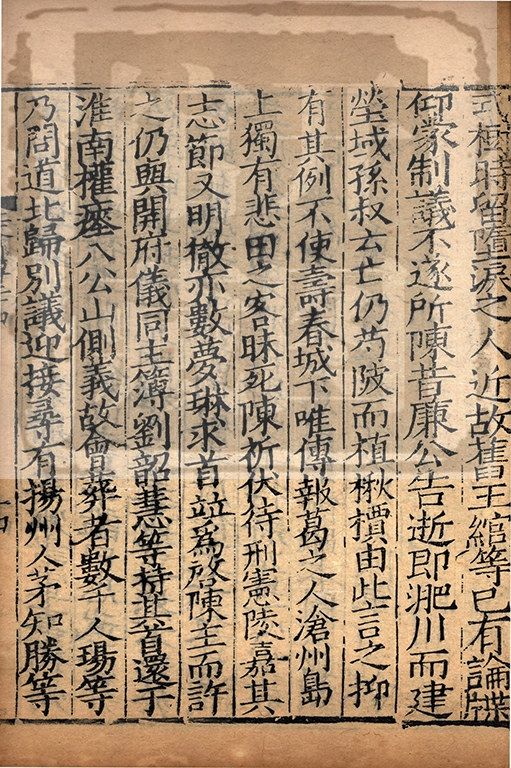 式樹時留墮淚之人近故舊王綰等已有論牒
仰蒙制議不遂所陳昔廉公告逝即淝川而建
塋域孫叔云亡仍芍陂而植楸檟由此言之抑
有其例不使壽春城下唯傳報葛之人滄州島
上獨有悲田之客昧死陳祈伏待刑憲陵嘉其
志節又明徹亦數夢琳求首並爲啓陳主而許
之仍與開府儀同主簿劉韶慧等持其首還于
淮南權瘞八公山側義故會葬者數千人瑒等
乃問道北歸别議迎接尋有揚州人茅知勝等